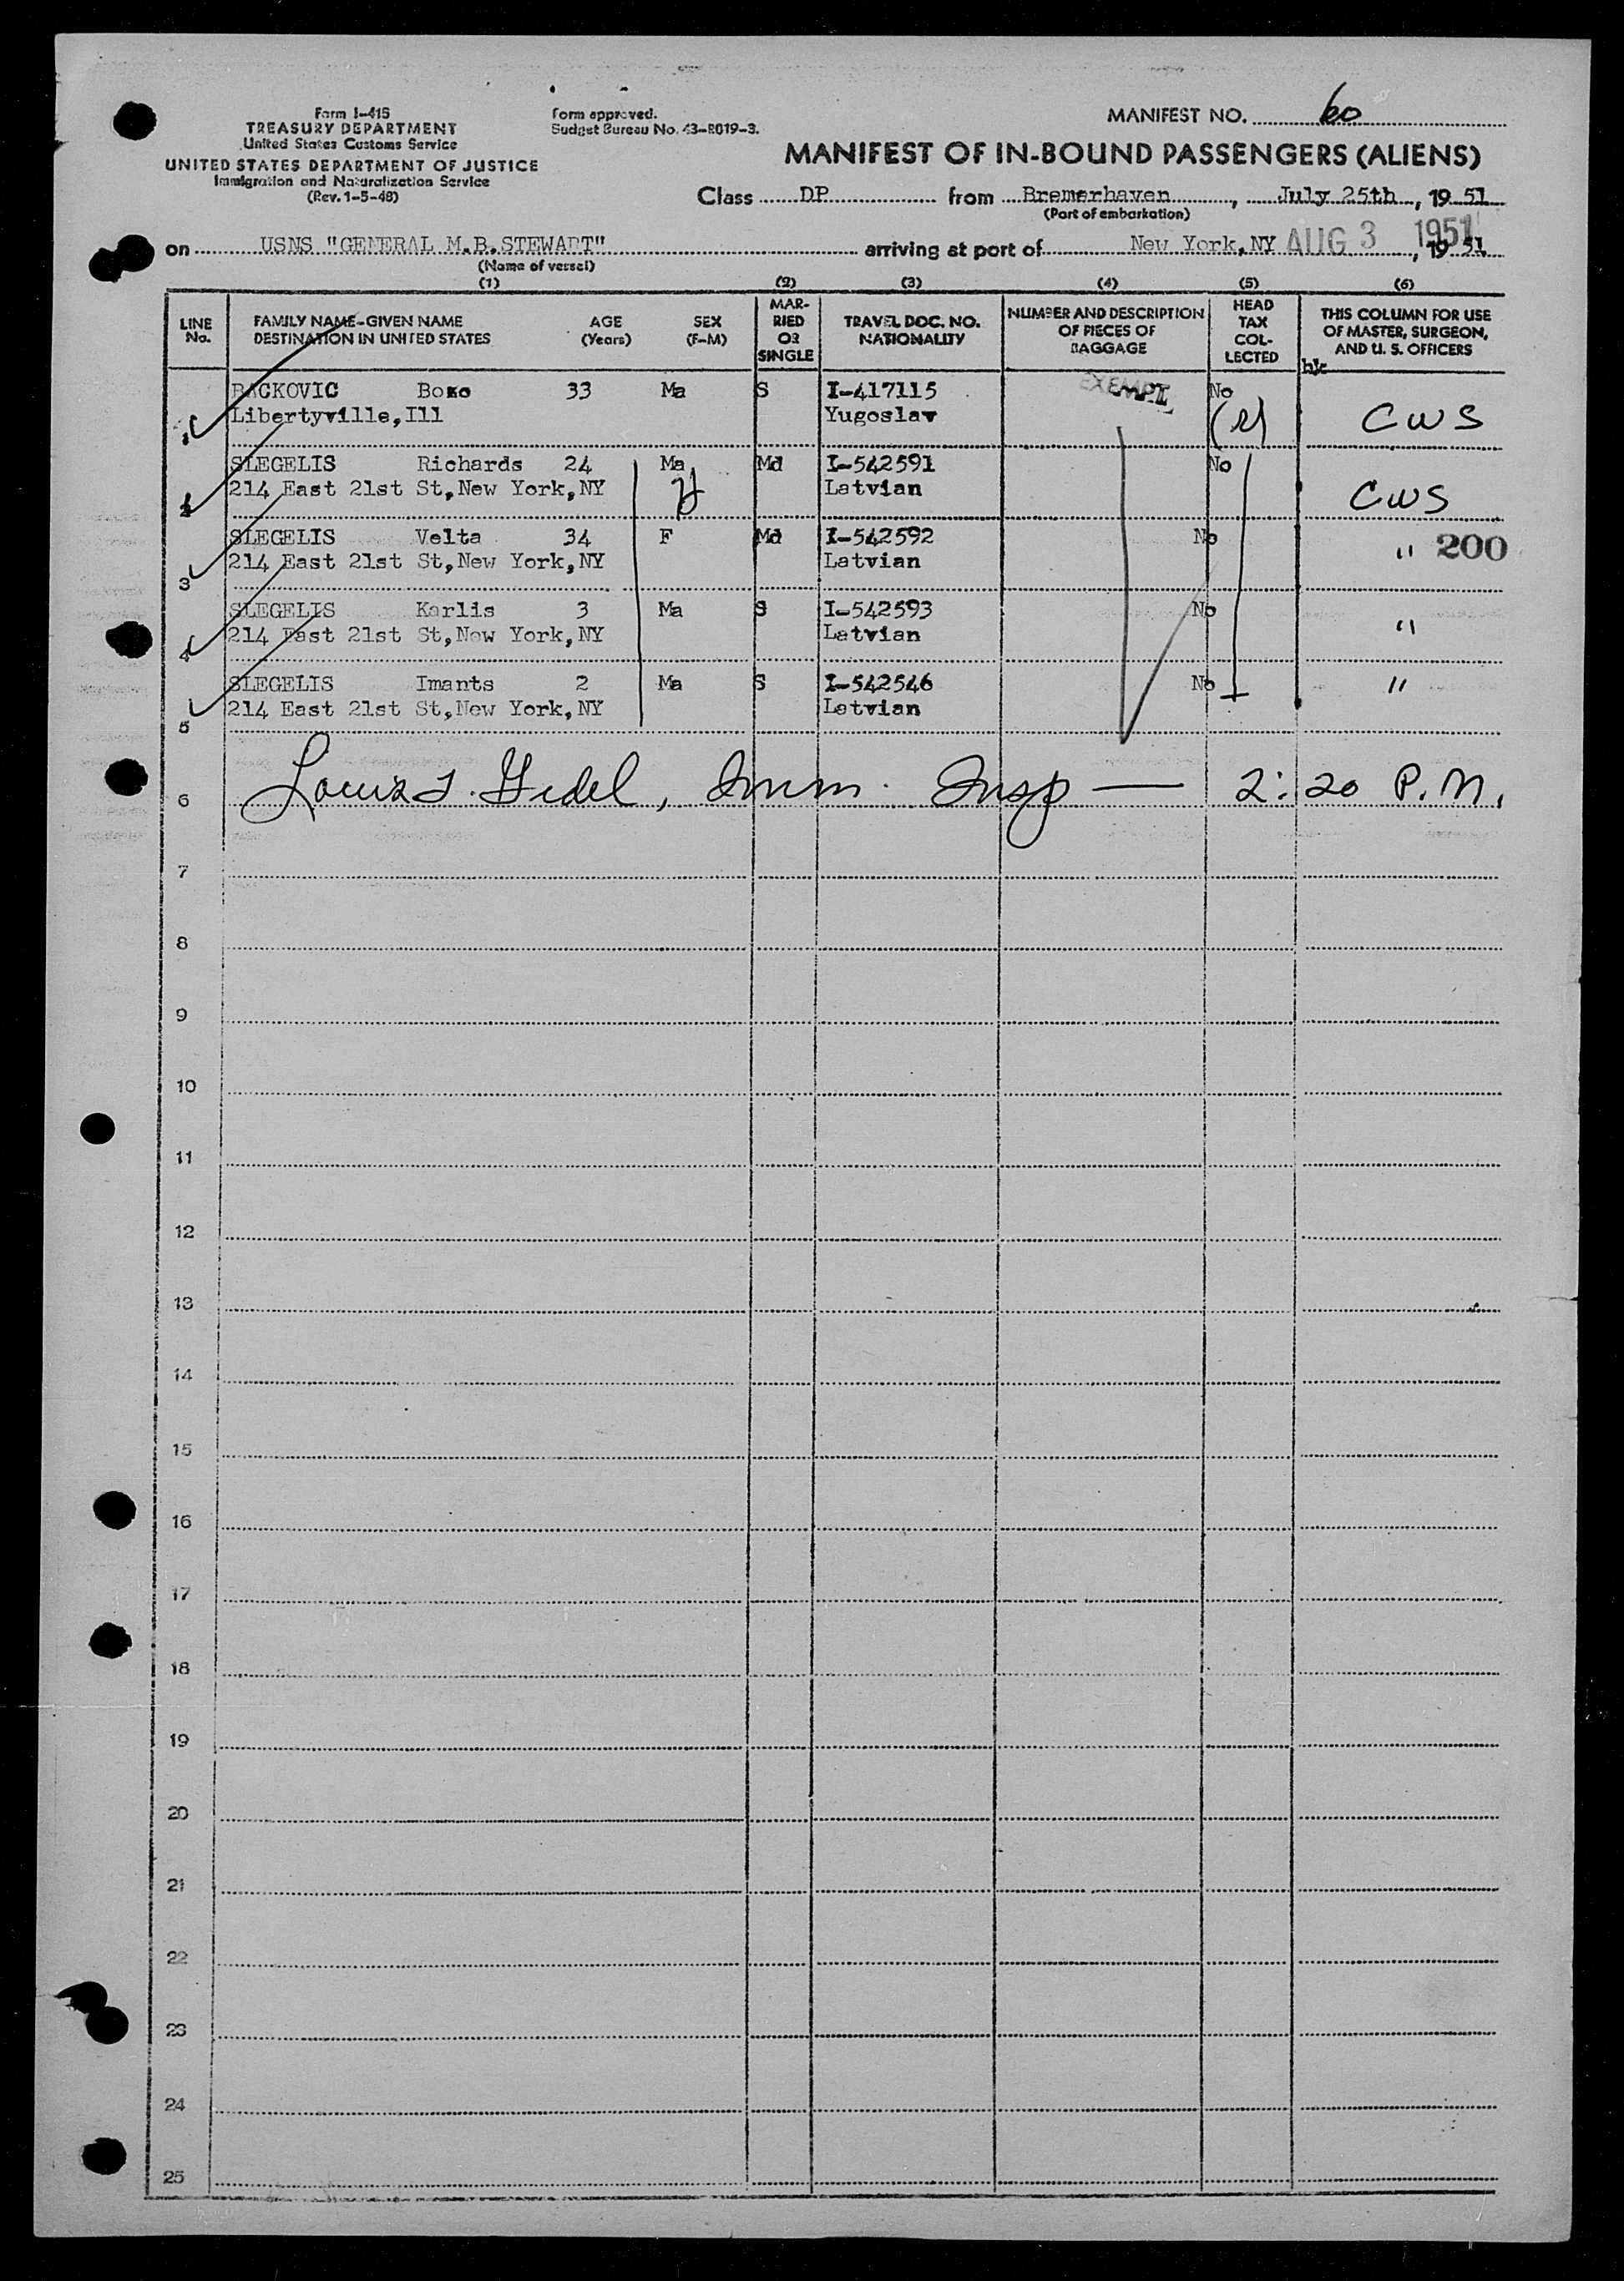 Form I-415
TREASURY DEPARTMENT
United States Customs Service
UNITED STATES DEPARTMENT OF JUSTICE
Immigration and Naturalization Service
(Rev. 1-5-48)
Form approved.
Budget Bureau No. 43-R019-3.
MANIFEST NO. 60
MANIFEST OF IN-BOUND PASSENGERS (ALIENS)
Class DP from Bremerhaven, July 25th, 1951
(Port of embarkation)
on USNS "GENERAL M.B.STEWART" arriving at port of New York, NY AUG 3 1951, 1951
(Name of vessel)
(1) (2) (3) (4) (5) (6)
LINE No.
FAMILY NAME-GIVEN NAME
DESTINATION IN UNITED STATES
AGE
(Years)
SEX
(F-M)
MAR-
RIED
OR
SINGLE
TRAVEL DOC. NO.
NATIONALITY
NUMBER AND DESCRIPTION
OF PIECES OF
BAGGAGE
HEAD
TAX
COL-
LECTED
THIS COLUMN FOR USE
OF MASTER, SURGEON,
AND U. S. OFFICERS
1 BACKOVIC Bozo 33 Ma S I-417115 EXEMPT No
Libertyville,Ill Yugoslav CWS
2 SLEGELIS Richards 24 Ma Md I-542591 No
214 East 21st St,New York,NY Latvian CWS
3 SLEGELIS Velta 34 F Md I-542592 No
214 East 21st St,New York,NY Latvian " 200
4 SLEGELIS Karlis 3 Ma S I-542593 No
214 East 21st St,New York,NY Latvian "
5 SLEGELIS Imants 2 Ma S I-542546 No "
214 East 21st St,New York,NY Latvian
6 Imm. Insp — 2:20 P.M.
7
8
9
10
11
12
13
14
15
16
17
18
19
20
21
22
23
24
25